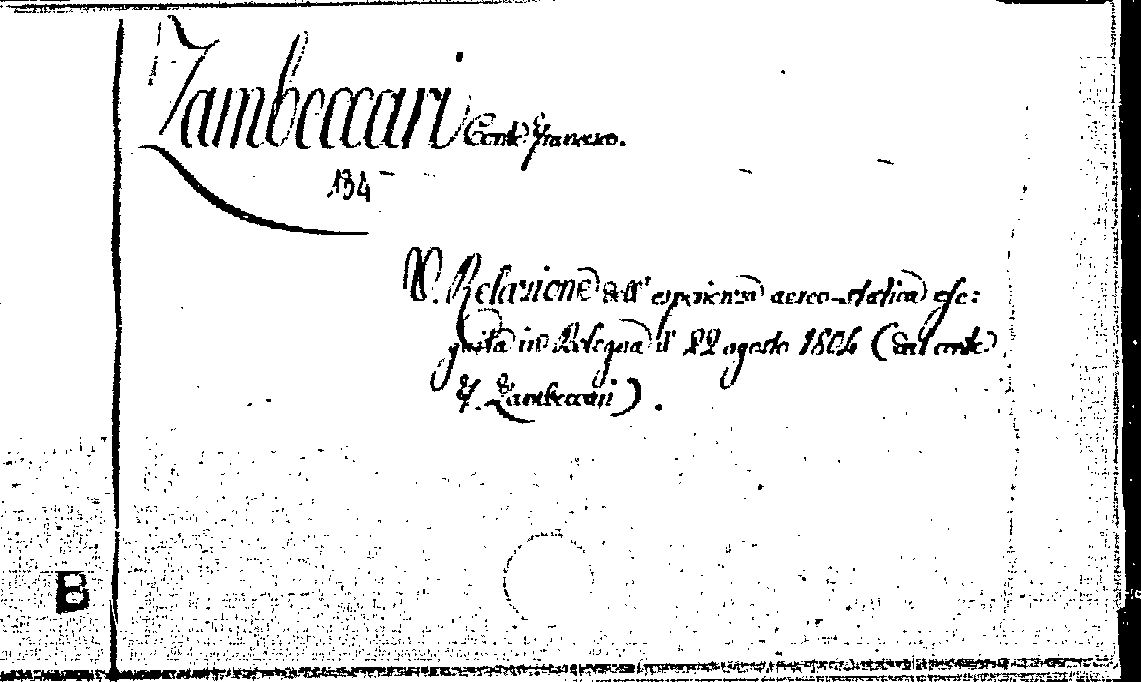 Zambeccari Conte Francesco.
134
V. Relazione dell' esperienza aereo-statica ese:
guita in Bologna il 22 agosto 1804 (dal conte
F. Zambeccari).
B